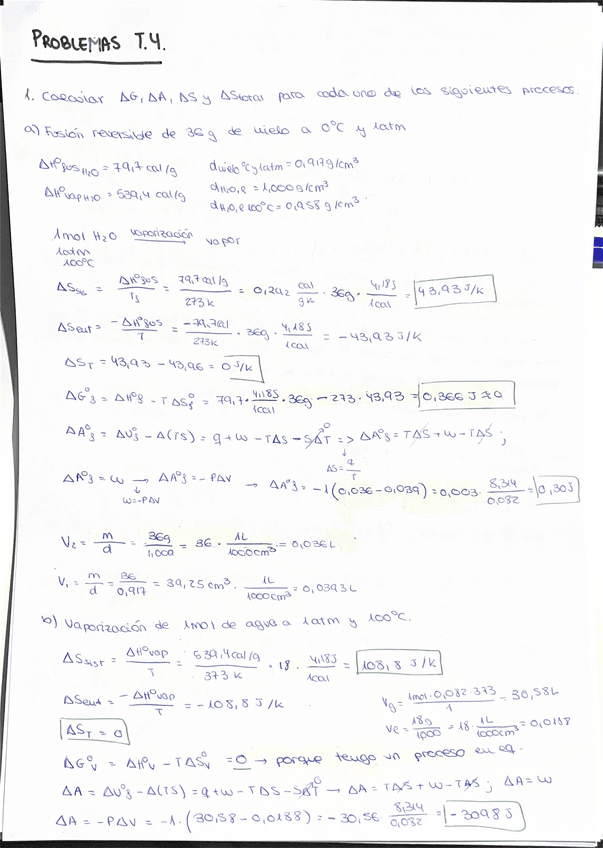 PROBLEMAS T.4.
1. Calcular ΔG, ΔA, ΔS y ΔStotal para cada uno de los siguientes procesos.
a) Fusión reversible de 36 g de hielo a 0°C y 1atm
ΔH°fus H2O = 79,7 cal/g    dhielo °C y 1atm = 0,917 g/cm³
ΔH°vap H2O = 539,4 cal/g    dH2O,l = 1,000 g/cm³
dH2O,l 100°C = 0,958 g/cm³
1mol H2O —vaporización→ vapor
1atm
100°C
ΔSsis = ΔH°fus/Tf = 79,7 cal/g / 273 K = 0,292 cal/gK · 36g · 4,18J/1cal = 43,93 J/K
ΔSent = -ΔH°fus/T = -79,7cal/273K · 36g · 4,18J/1cal = -43,93 J/K
ΔST = 43,93 - 43,96 = 0 J/K
ΔG°f = ΔH°f - TΔS°f = 79,7 · 4,18J/1cal · 36g - 273 · 43,93 = 0,366 J ≈ 0
ΔA°f = ΔU°f - Δ(TS) = q + w - TΔS - SΔT⁰ => ΔA°f = TΔS + w - TΔS ;
ΔS = q/T
ΔA°f = w → ΔA°f = -PΔV → ΔA°f = -1(0,036-0,039) = 0,003 · 8,314/0,082 = 0,30J
w=-PΔV
V2 = m/d = 36g/1,000 = 36 · 1L/1000cm³ = 0,036L
V1 = m/d = 36/0,917 = 39,25 cm³ · 1L/1000cm³ = 0,0393L
b) Vaporización de 1mol de agua a 1atm y 100°C.
ΔSsist = ΔH°vap/T = 539,4cal/g / 373 K · 18 · 4,18J/1cal = 108,8 J/K
ΔSent = -ΔH°vap/T = -108,8 J/K    Vg = 1mol·0,082·373/1 = 30,58L
ΔST = 0    Vl = 18g/1000 = 18 · 1L/1000cm³ = 0,0188
ΔG°v = ΔH°v - TΔS°v = 0 → porque tengo un proceso en eq.
ΔA = ΔU°f - Δ(TS) = q + w - TΔS - SΔT⁰ → ΔA = TΔS + w - TΔS ; ΔA = w
ΔA = -PΔV = -1 · (30,58 - 0,0188) = -30,56 8,314/0,082 = -3098 J